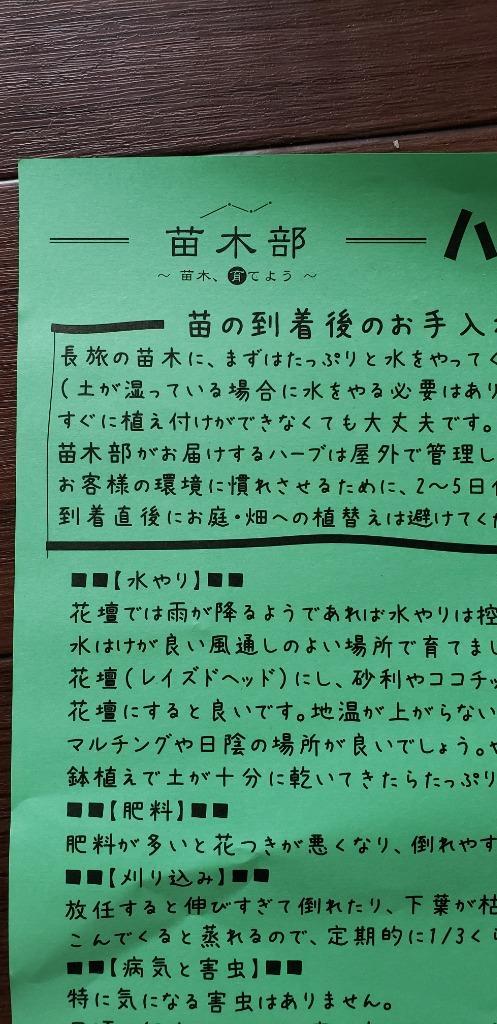 苗木部
〜 苗木、育てよう 〜
ハ
苗の到着後のお手入
長旅の苗木に、まずはたっぷりと水をやって
(土が湿っている場合に水をやる必要はあり
すぐに植え付けができなくても大丈夫です。
苗木部がお届けするハーブは屋外で管理し
お客様の環境に慣れさせるために、2〜5日
到着直後にお庭・畑への植替えは避けてく
■■【水やり】■■
花壇では雨が降るようであれば水やりは控
水はけが良い風通しのよい場所で育てまし
花壇(レイズドヘッド)にし、砂利やココチッ
花壇にすると良いです。地温が上がらない
マルチングや日陰の場所が良いでしょう。
鉢植えで土が十分に乾いてきたらたっぷり
■■【肥料】■■
肥料が多いと花つきが悪くなり、倒れやす
■■【刈り込み】■■
放任すると伸びすぎて倒れたり、下葉が枯
こんでくると蒸れるので、定期的に1/3くら
■■【病気と害虫】■■
特に気になる害虫はありません。